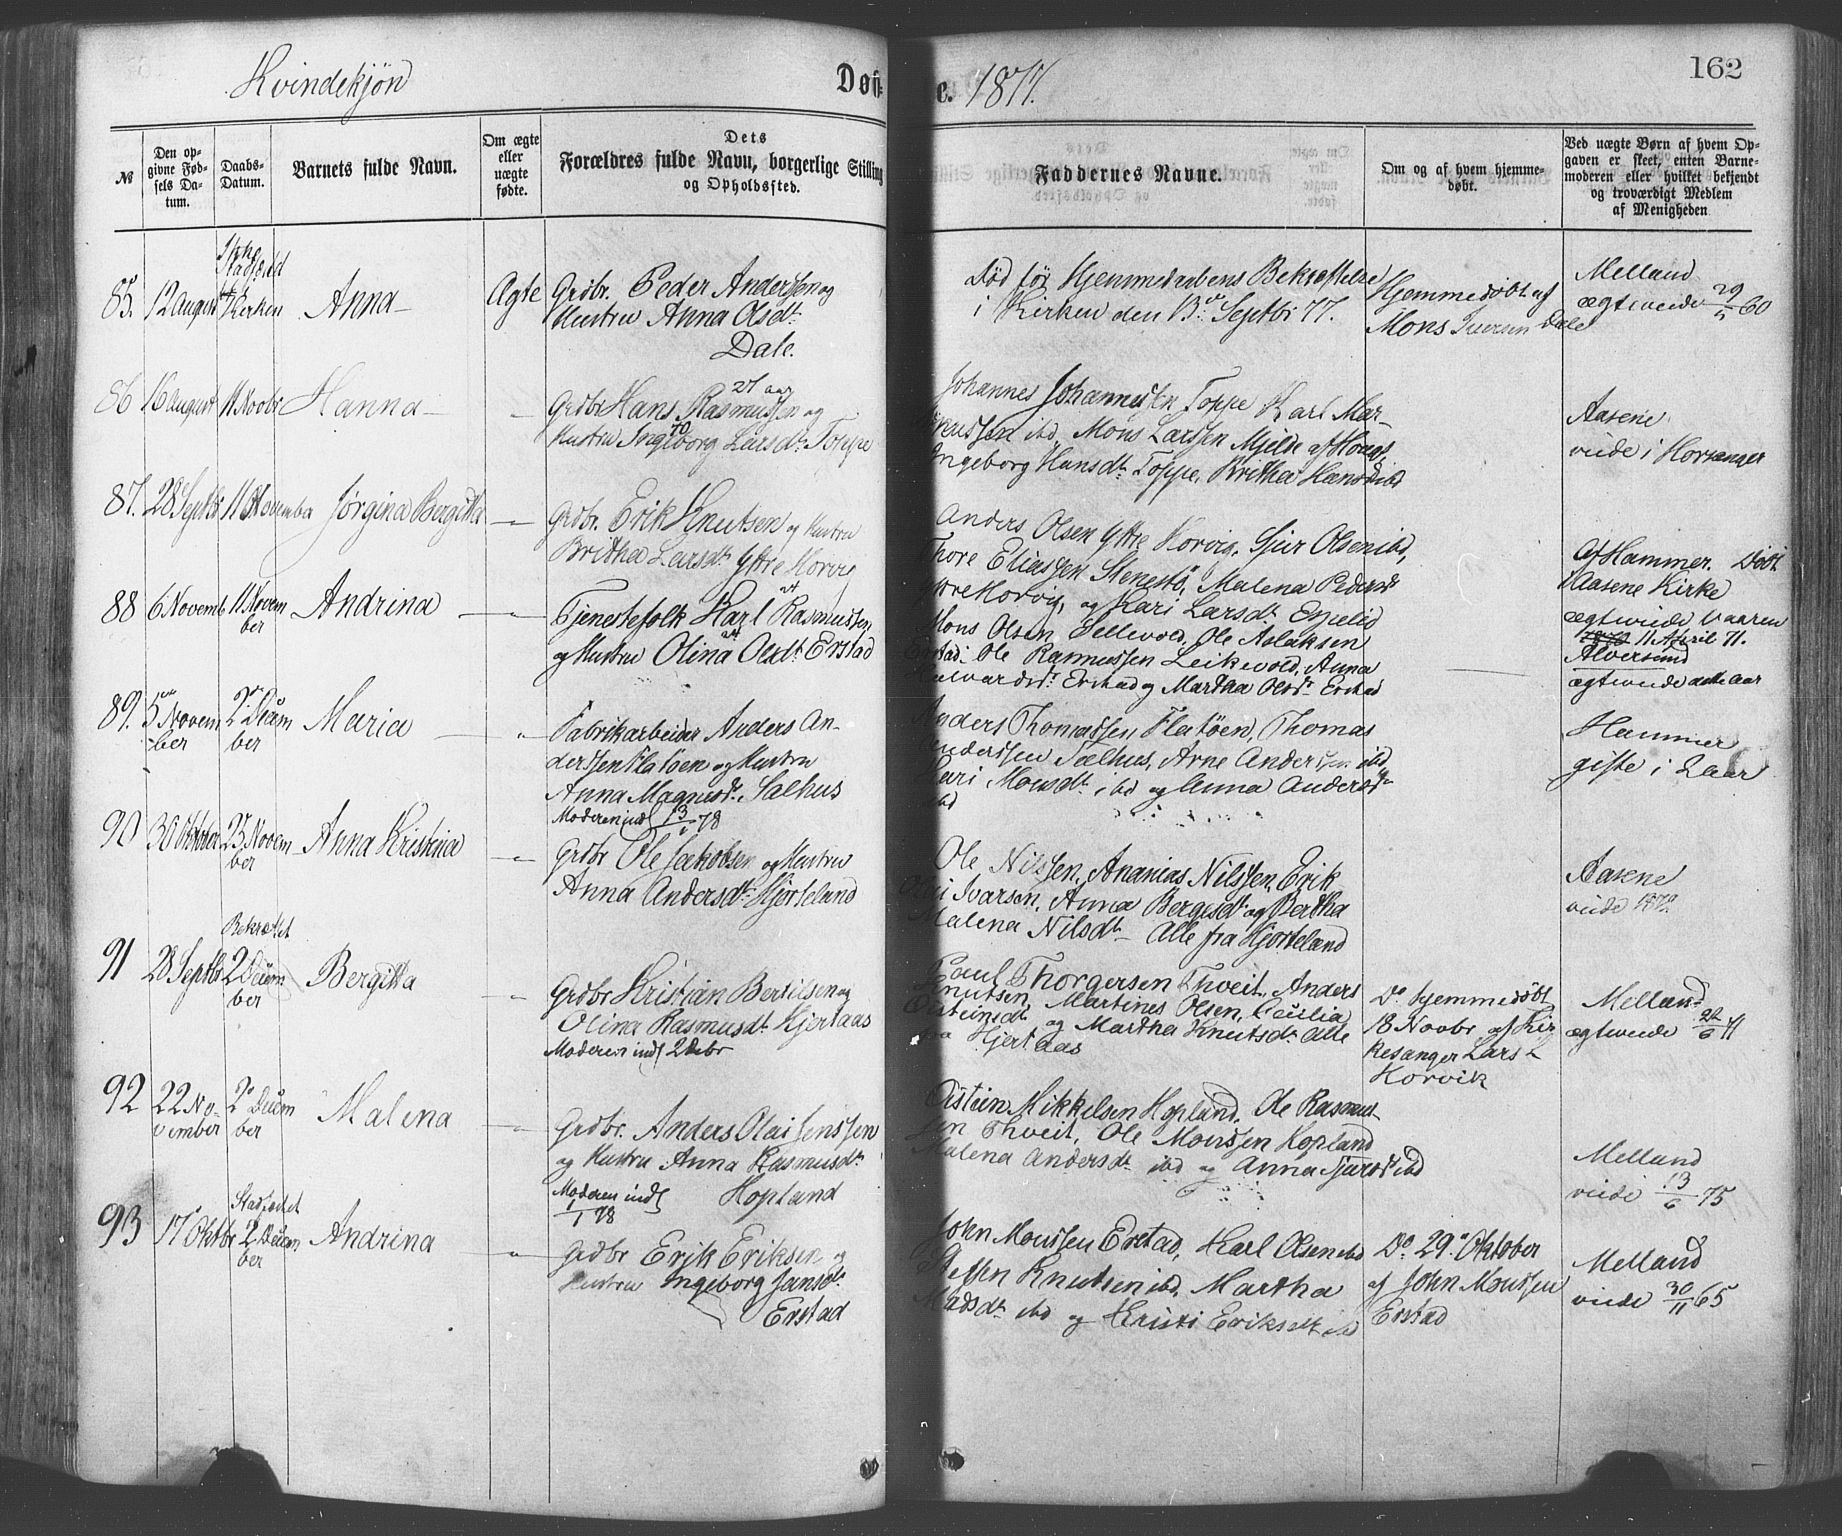 Kvindekjøn
Døb
e. 1877.
162
№
Den opgivne Fødsels Datum.
Daabs-Datum.
Barnets fulde Navn.
Om ægte eller uægte fødte.
Dets Forældres fulde Navn, borgerlige Stilling og Opholdssted.
Faddernes Navne.
Om og af hvem hjemmedøbt.
Ved uægte Børn af hvem Opgaven er skeet, enten Barnemoderen eller hvilket bekjendt og troværdigt Medlem af Menigheden
85. 12 August
Ikke Stadfæstd i Kirken
Anna
Ægte
Grdbr. Peder Anderssen og
Hustru Anna Olsdt.
Dale.
død før Hjemmedaabens Bekræftelse
i Kirken den 13de Septbr 77.
Hjemmedøbt af
Mons Iversen Dale
Melland
ægteviede 29/11 60
86 16 August 11 Novbr Hanna
27 aar
Grdbr Hans Rasmussen og
Hustru Ingeborg Larsdt. Toppe
Johannes Johannessen Toppe Karl Mar-
kussen ibd, Mons Larssen Mjelde af Hous,
Ingeborg Hansdt. Toppe, Britha Hansdt ibd
Aasene
viede i Horsanger
87. 28 Septbr 11 November Jørgina Bergitta
Grdbr. Erik Knutsen og Hustru
Britha Larsdt. Ytre Horvig
Anders Olsen Ytre Horvig, Sjur Olsen ibd,
Thore Eliassen Stenestø, Malena Pedersdt
Ytre Horvig, og Kari Larsdt. Espelid
Af Hammer. Døbt
i Aasene Kirke
ægteviede Vaaren
11. April 71.
88 6 Novemb 11 November Andrina
Tjenestefolk Karl Rasmussen,
og Hustru Olina Olsdt. Erstad
Mons Olsen Sellevold, Ole Aslaksen
Erstad. Ole Rasmussen Leikvold, Anna
Halvardsdt. Erstad og Martha Olsdt. Erstad
Alversund
ægteviede dette Aar
89. 5 November 2 December Maria
Fabrikarbeider Anders An-
derssen Flatøen og Hustru
Anna Magnusdt. Salhus
Moderen indl 13/1 78
Anders Thomassen Flatøen, Thomas
Anderssen Sælhus, Arne Andersen ibd,
Kari Monsdt. ibd og Anna Andersdt
ibd
Hammer
gifte i 2 Aar
90 30 Oktober 25 November Anna Kristina
Grdbr Ole Jakobsen og Hustru
Anna Andersdt. Hjorteland
Ole Nilssen, Ananias Nilssen, Erik
Olai Ivarsen, Anna Bergesdt og Bertha
Malena Nilsdt. Alle fra Hjorteland
Aasene
viede 1872.
91 28 Septbr
Bekræftet
2 December
Bergitta
Grdbr Kristian Bertilsen og
Olina Rasmusdt. Hjertaas
Moderen indl 2 Debr
Paul Thorgersen Thveit, Anders
Knutsen, Martines Olsen, Cecilia
Eisteinsdt. og Martha Knutsdt. alle
fra Hjertaas
Do Hjemmedøbt
18 Novbr af Kir
kesanger Lars L
Horvik
Melland
ægteviede 22/6 71
92 22 November 2 December Malena
Grdbr. Anders Olai Jenssen
og Hustru Anna Rasmusdt.
Hopland
Moderen indl 1/1 78
Eistein Mikkelsen Hopland. Ole Rasmus-
sen Thveit, Ole Monssen Hopland
Malena Andersdt. ibd og Anna Sjursdt ibd
Melland
viede 13/6 75
93 17 Oktbr
Stadfæstet
2 December
Andrina
Grdbr Erik Eriksen og
Hustru Ingeborg Jansdt.
Erstad
John Monssen Erstad, Karl Olsen ibd
Steffen Knutsen ibd, Martha
Madsdt. ibd og Kristi Eriksdt ibd
Do 29. Oktober
af John Monssen
Erstad
Melland
viede 30/11 65